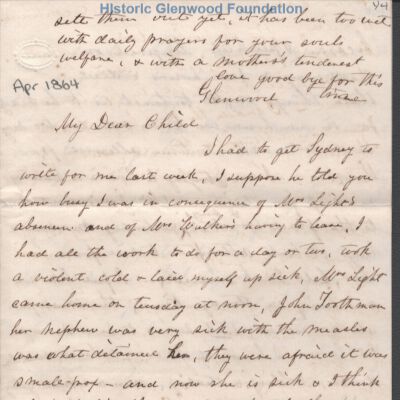 Historic Glenwood Foundation
1/4
sett them out yet, it has been too wet
with daily prayers for your souls
welfare, & with a mother's tenderest
love good bye for this
Apr 1864
Glenwood time
My Dear Child
I had to get Sydney to
write for me last week, I suppose he told you
how busy I was in consequence of Mrs Light's
absence and of Mrs Walkins having to leave, I
had all the work to do for a day or two, took
a violent cold & laid myself up sick, Mrs Light
came home on tuesday at noon, John Toothman
her nephew was very sick with the measles
was what detained her, they were afraid it was
small-pox - and now she is sick & I think